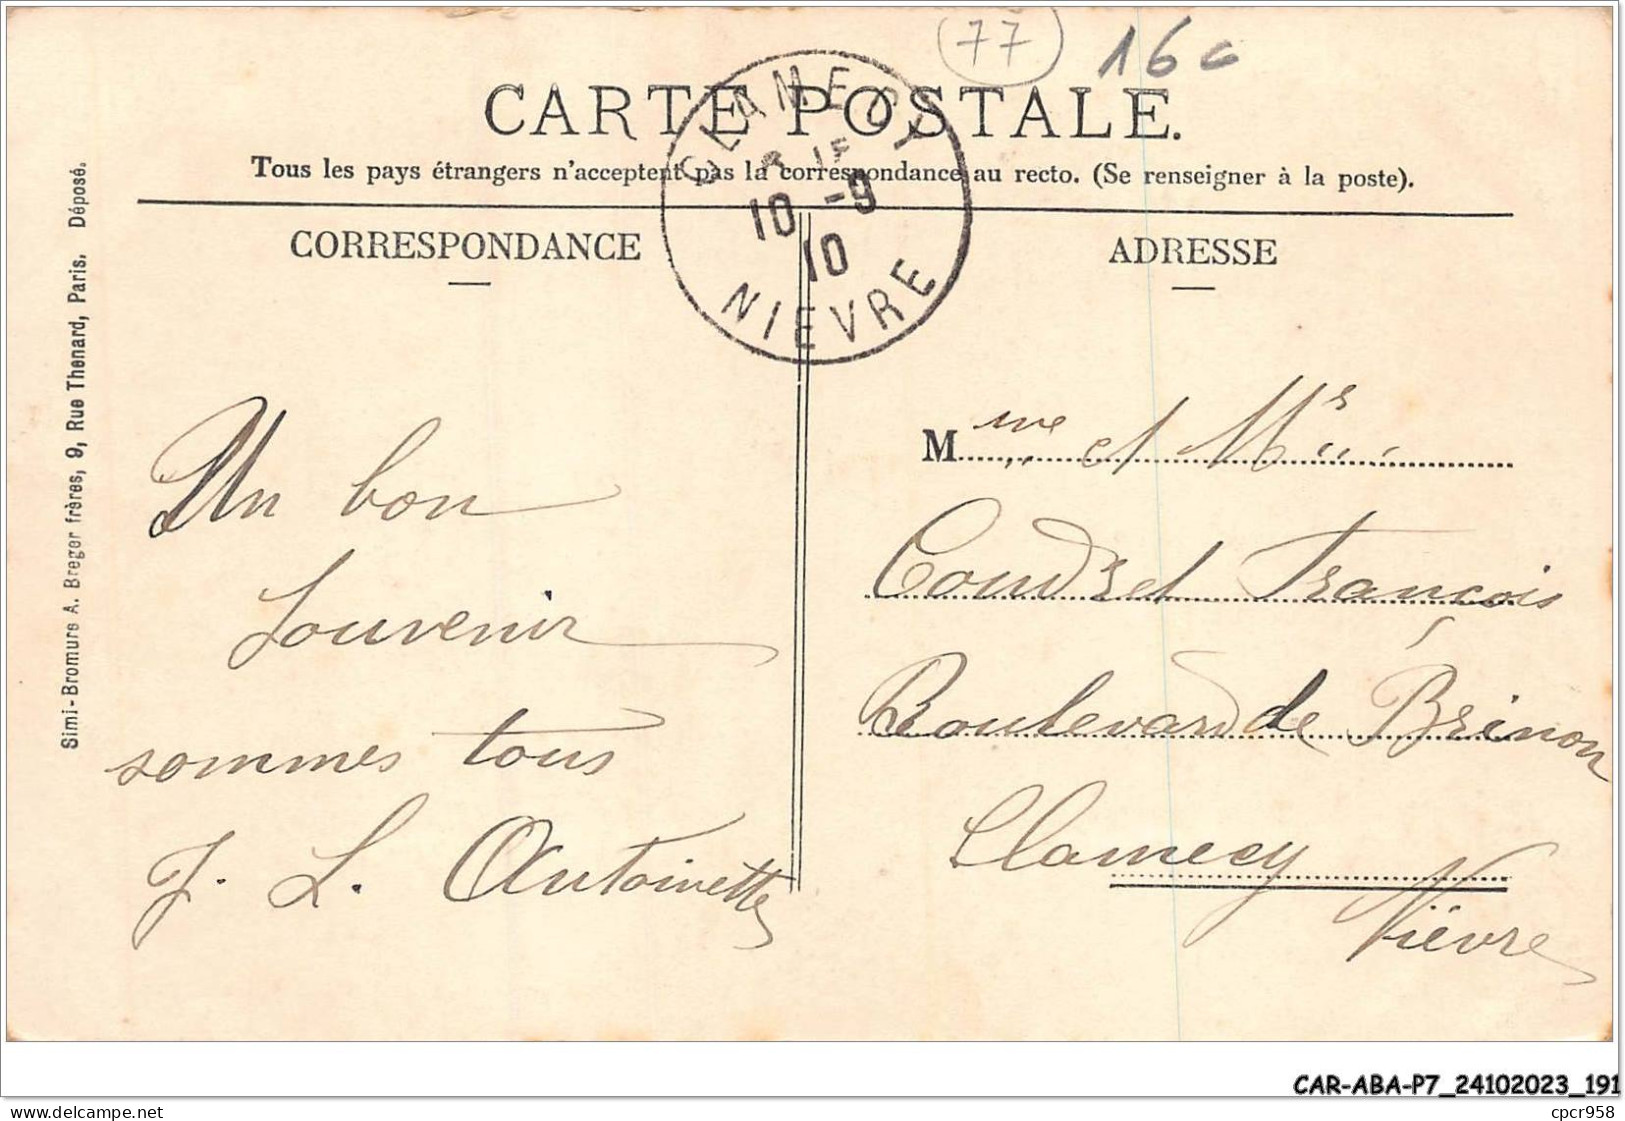 77 16c
CARTE POSTALE.
Tous les pays étrangers n'acceptent pas la correspondance au recto. (Se renseigner à la poste).
CLAMECY
10 -9
10
NIEVRE
CORRESPONDANCE
ADRESSE
Simi-Bromure A. Breger frères, 9, Rue Thenard, Paris. Déposé.
Un bon
souvenir
sommes tous
J. L. Antoinette
Mme et Mr
Coudret François
Boulevard de Brinon
Clamecy
Nièvre
CAR-ABA-P7_24102023_191
cpcr958